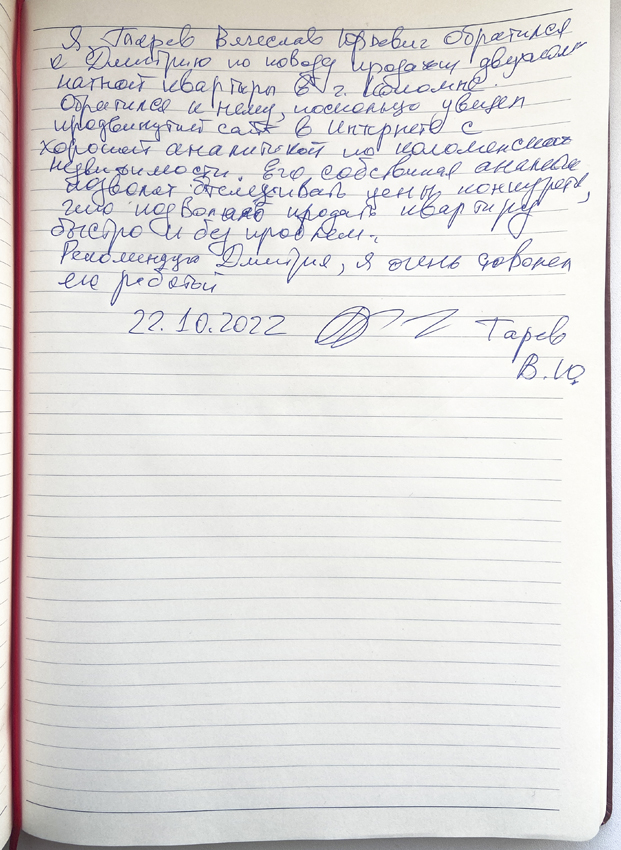 Я Гаврев Вячеслав Юрьевич обратился
к Дмитрию по поводу продажи двухком-
натной квартиры в г. Коломне.
Обратился к нему, поскольку увидел
продвинутый сайт в Интернете с
хорошей аналитикой по коломенской
недвижимости. Его собственная аналитика
позволяет отслеживать цены конкурентов,
что позволило продать квартиру
быстро и без проблем.
Рекомендую Дмитрия, я очень доволен
его работой
22.10.2022 Гарев
В.Ю